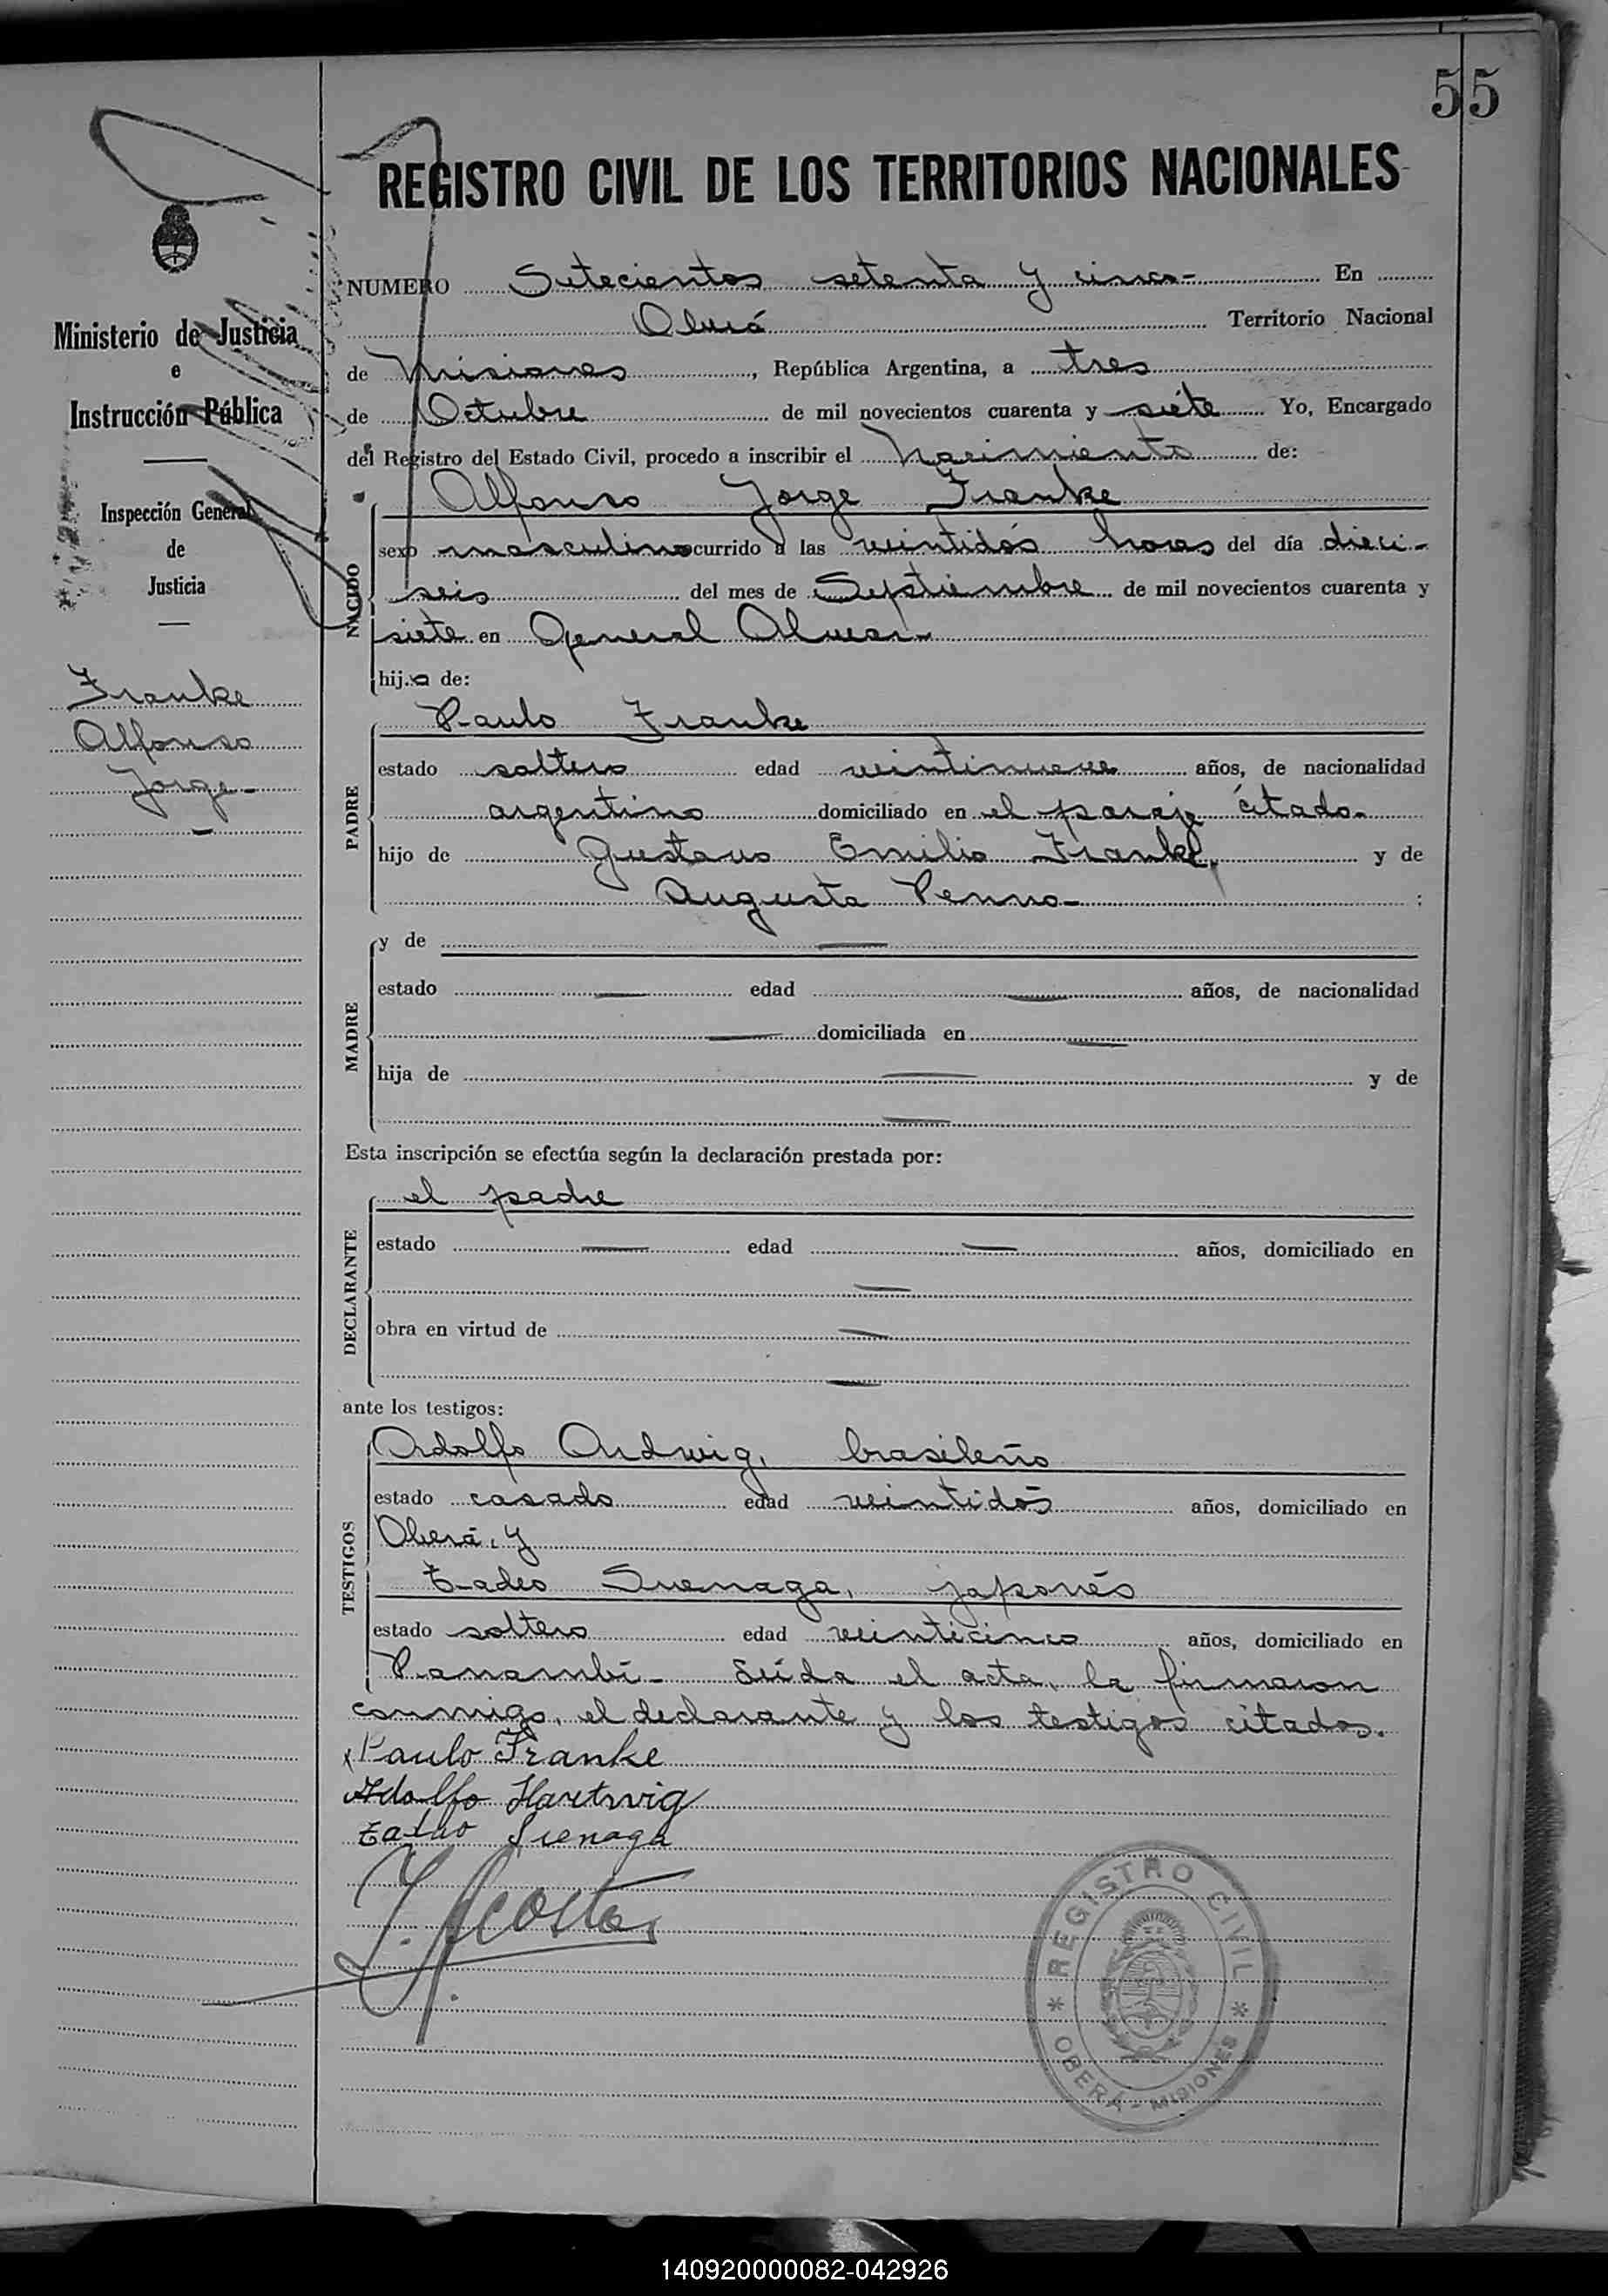 55
REGISTRO CIVIL DE LOS TERRITORIOS NACIONALES
Ministerio de Justicia
e
Instrucción Pública
Inspección General
de
Justicia
Franke
Alfonso
Jorge
NUMERO Setecientos setenta y cinco- En
Oberá Territorio Nacional
de Misiones, República Argentina, a tres
de Octubre de mil novecientos cuarenta y siete Yo, Encargado
del Registro del Estado Civil, procedo a inscribir el Nacimiento de:
NACIDO
Alfonso Jorge Franke
sexo masculino ocurrido a las veintidós horas del día dieci-
seis del mes de Septiembre de mil novecientos cuarenta y
siete en General Alvear-
hijo de:
PADRE
Paulo Franke
estado soltero edad veintinueve años, de nacionalidad
argentino domiciliado en el paraje citado.
hijo de Gustavo Emilio Franke, y de
Augusta Penno- :
MADRE
y de —
estado — edad — años, de nacionalidad
— domiciliada en —
hija de — y de
—
Esta inscripción se efectúa según la declaración prestada por:
DECLARANTE
el padre
estado — edad — años, domiciliado en
—
obra en virtud de —
—
ante los testigos:
TESTIGOS
Adolfo Ardwig, brasileño
estado casado edad veintidós años, domiciliado en
Oberá, y
Tadeo Suenaga, japonés
estado soltero edad veinticinco años, domiciliado en
Panambí- Leída el acta, la firmaron
conmigo, el declarante y los testigos citados.
Paulo Franke
Adolfo Hartwig
Suenaga
J. Acosta
REGISTRO CIVIL
OBERÁ - MISIONES
140920000082-042926